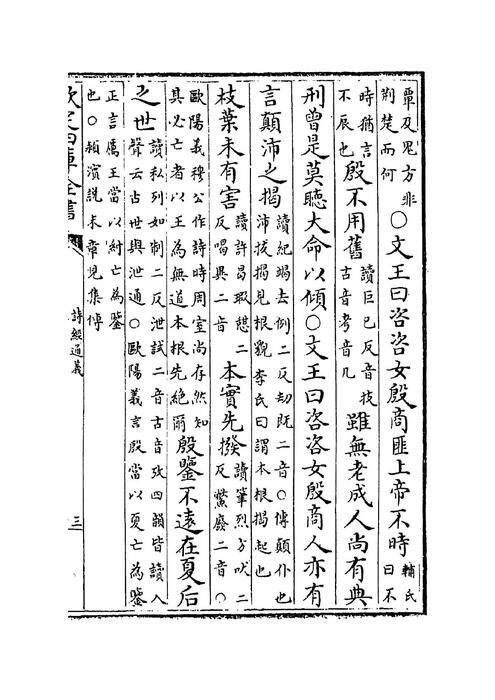 覃及鬼方非荆楚而何○文王曰咨咨女殷商匪上帝不時輔氏曰不
時猶言不辰也殷不用舊讀巨已反音技古音考音几雖無老成人尚有典
刑曾是莫聽大命以傾○文王曰咨咨女殷商人亦有
言顛沛之揭讀紀竭去例二反刼既二音○傳顛仆也沛拔揭見根貌李氏曰謂本根揭起也
枝葉未有害讀許曷瑕憇二反喝異二音本實先撥讀筆烈方吠二反鷩廢二音○
歐陽義穆公作詩時周室尚存然知其必亡者以王為無道本根先絶爾殷鑒不遠在夏后
之世讀私列如制二反泄試二音古音攷四韻皆讀入聲云古世與泄通○歐陽義言殷當以夏亡為鑒
正言厲王當以紂亡為鑒也○頻濱説末章見集傳
欽定四庫全書
詩經通義
三